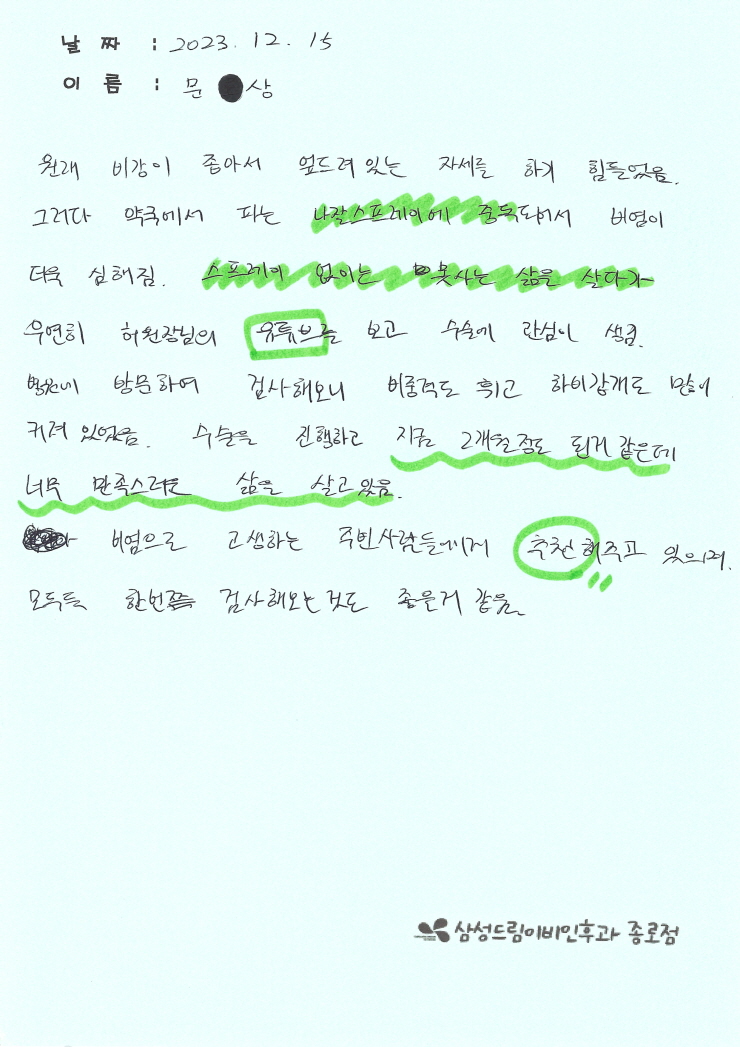 날 짜 : 2023. 12. 15
이 름 : 문 상
원래 비강이 좁아서 엎드려 있는 자세를 하기 힘들었음.
그러다 약국에서 파는 나잘스프레이에 중독되어서 비염이
더욱 심해짐. 스프레이 없이는 못사는 삶을 살다가
우연히 허원장님의 유튜브를 보고 수술에 관심이 생김.
병원에 방문하여 검사해보니 비중격도 휘고 하비갑개도 많이
커져 있었음. 수술을 진행하고 지금 2개월정도 된거 같은데
너무 만족스러운 삶을 살고 있음.
비염으로 고생하는 주변사람들에게 추천해주고 있으며.
모두들 한번쯤 검사해보는것도 좋을거 같음.
삼성드림이비인후과 종로점